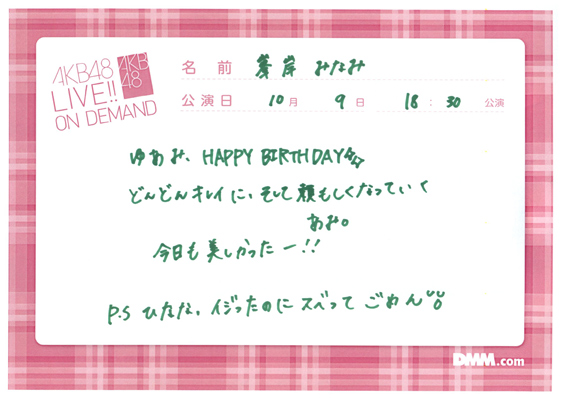 AKB48
LIVE!!
ON DEMAND
AKB
48
名前 峯岸 みなみ
公演日 10月 9日 18:30 公演
ゆあみ、HAPPY BIRTHDAY☆☆
どんどんキレイに、そして頼もしくなっていく
あみ。
今日も美しかったー!!
P.S ひなな、イジったのにスベって ごめん
DMM.com